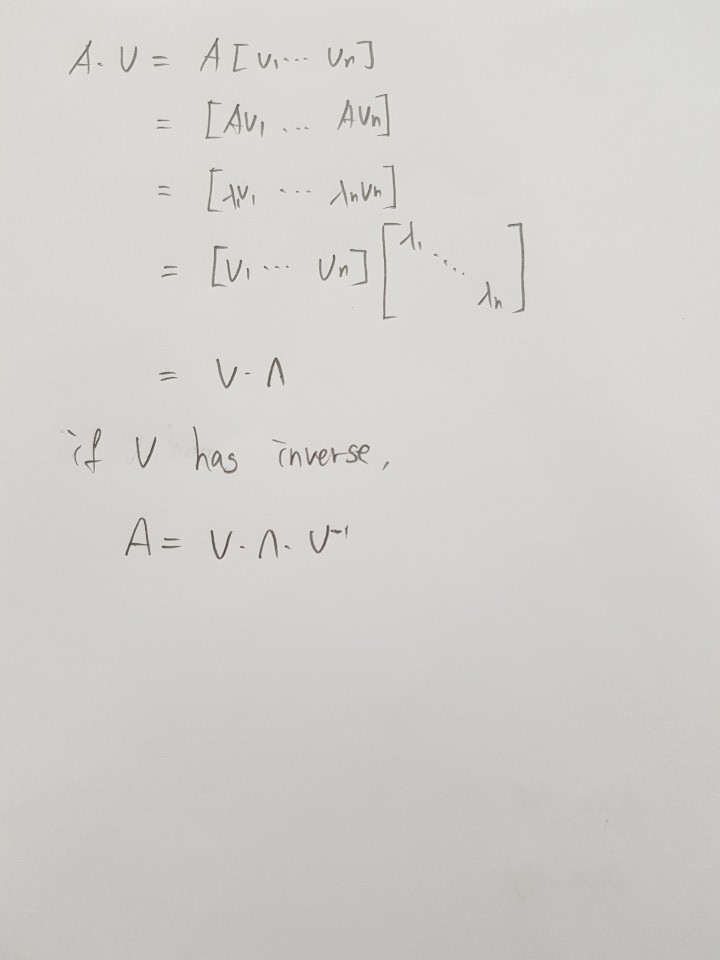 A · V = A [ v₁ ··· vₙ ]
= [ Av₁ ... Avₙ ]
= [ λ₁v₁ ··· λₙvₙ ]
= [ v₁ ··· vₙ ] [ λ₁ ⋱ λₙ ]
= V · Λ
if V has inverse,
A = V · Λ · V⁻¹